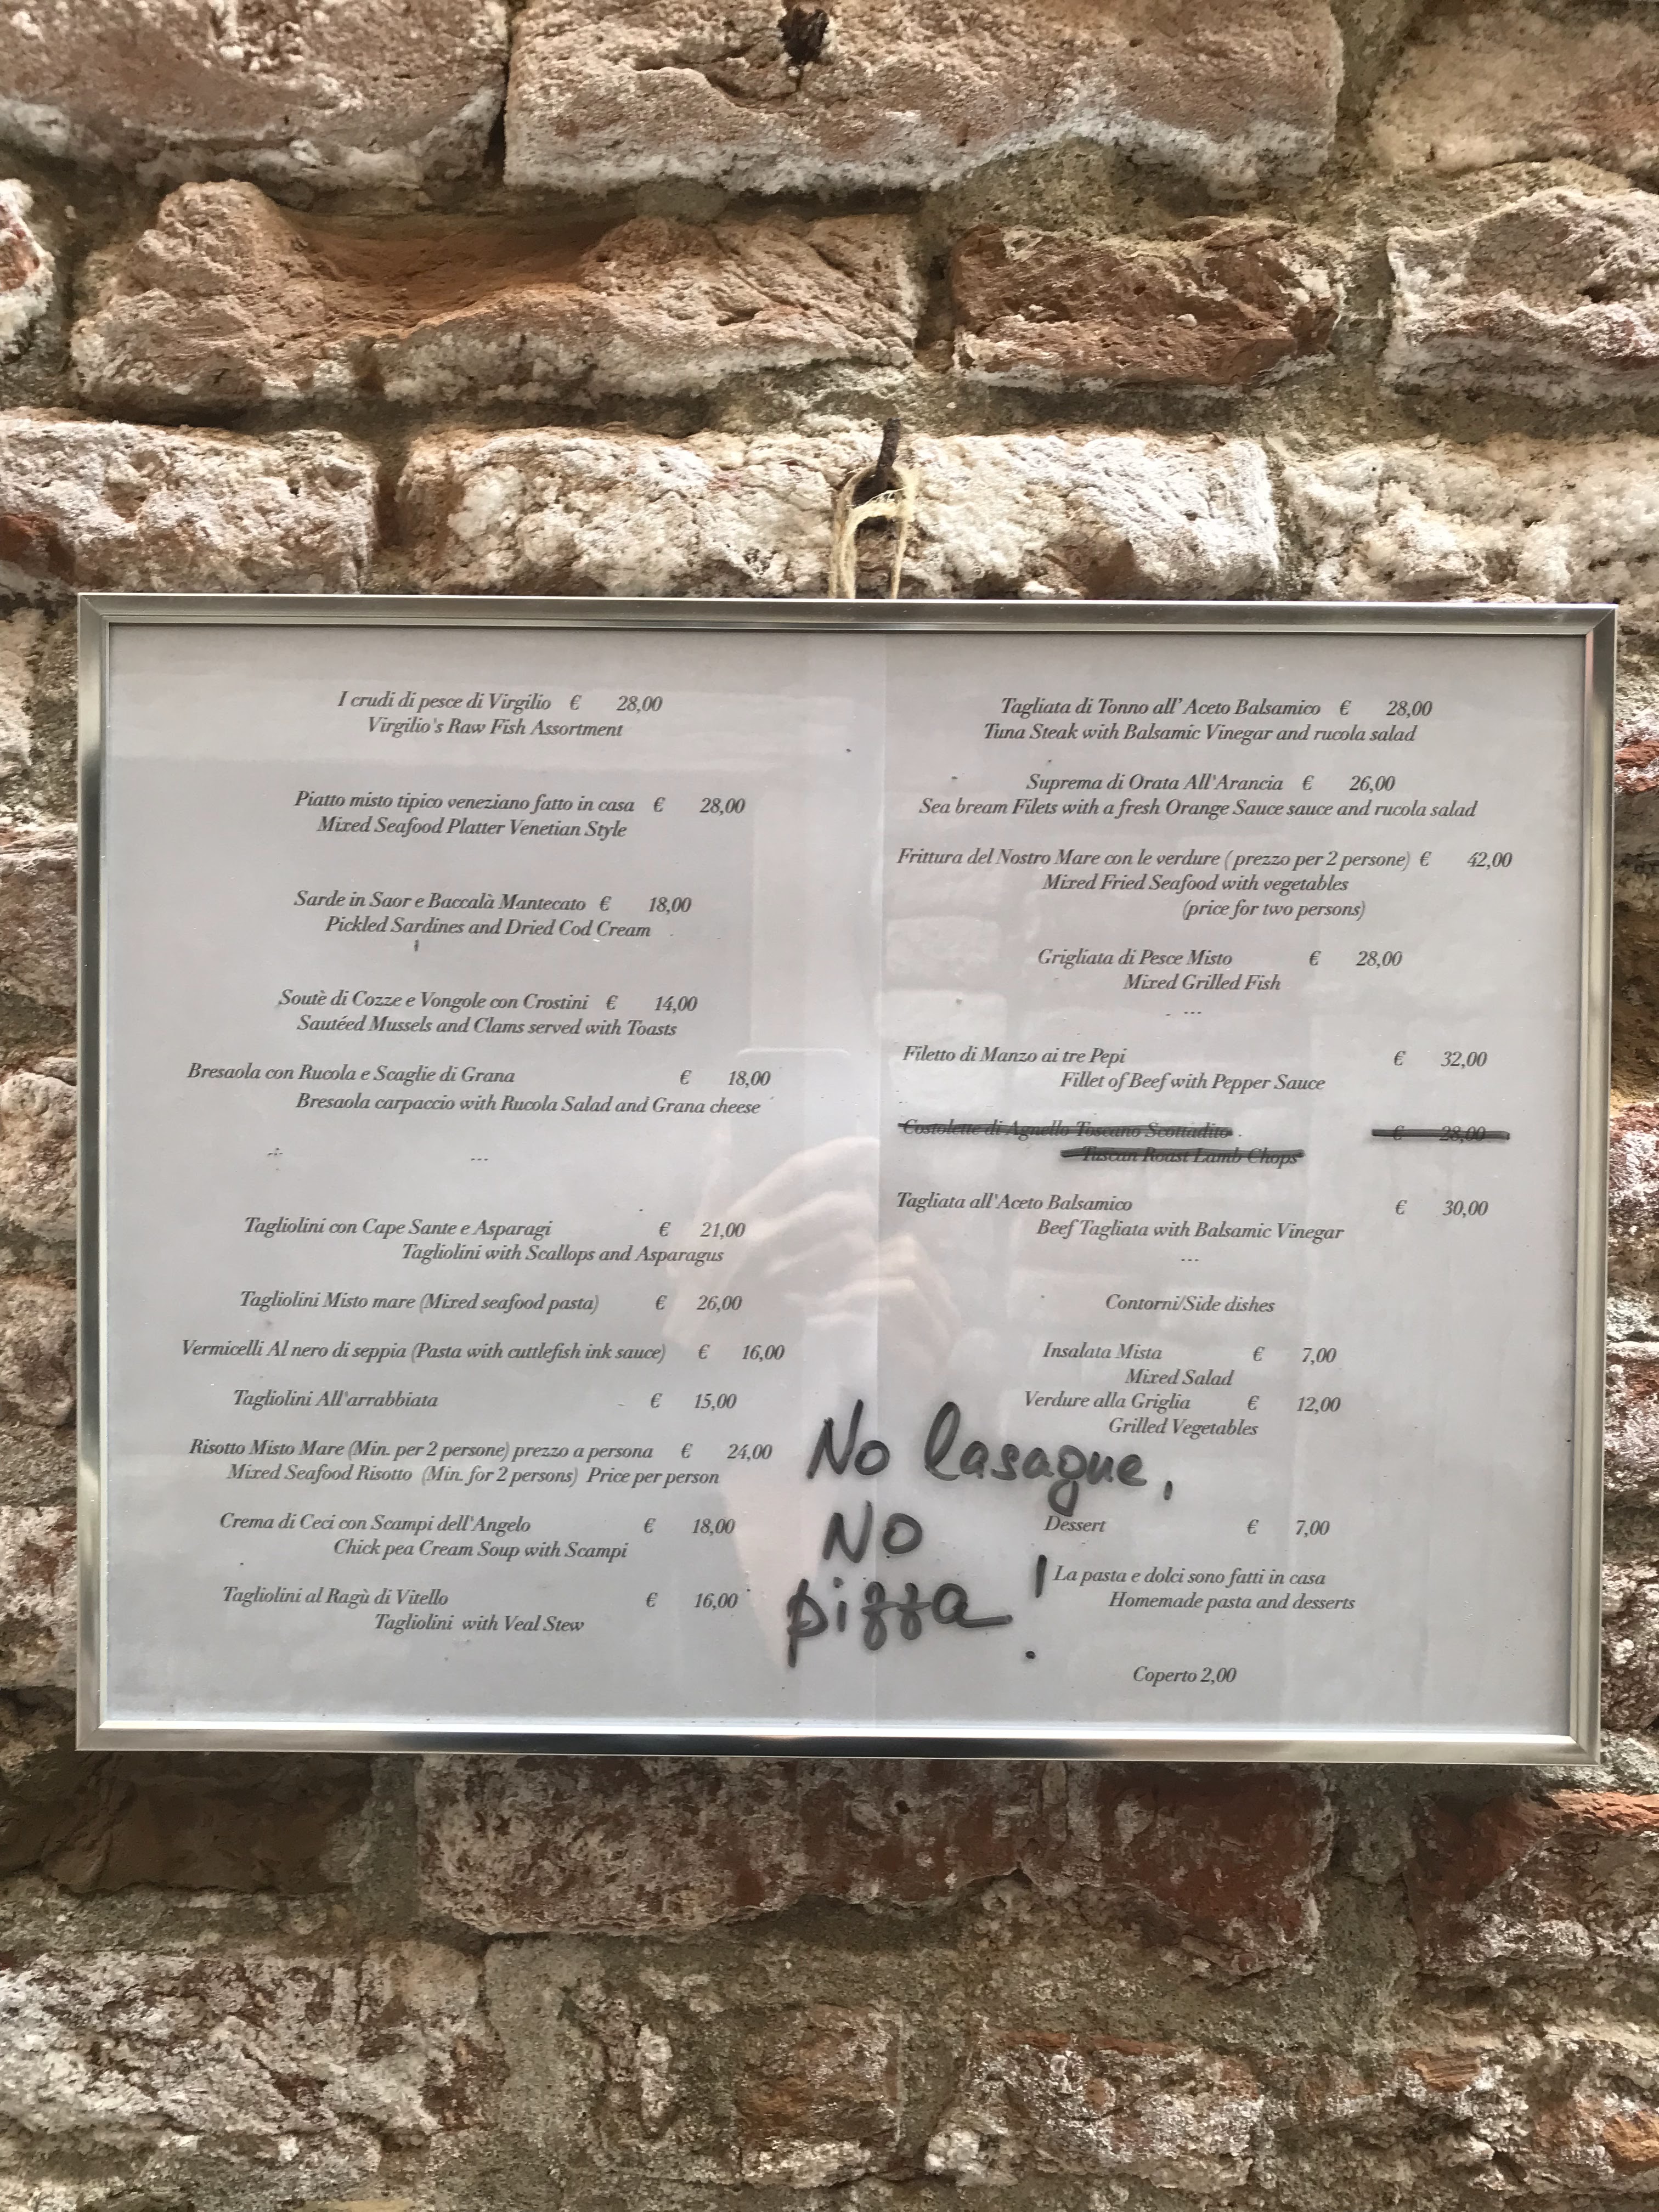 I crudi di pesce di Virgilio € 28,00
Virgilio's Raw Fish Assortment
Piatto misto tipico veneziano fatto in casa € 28,00
Mixed Seafood Platter Venetian Style
Sarde in Saor e Baccalà Mantecato € 18,00
Pickled Sardines and Dried Cod Cream
Soutè di Cozze e Vongole con Crostini € 14,00
Sautéed Mussels and Clams served with Toasts
Bresaola con Rucola e Scaglie di Grana € 18,00
Bresaola carpaccio with Rucola Salad and Grana cheese
---
Tagliolini con Cape Sante e Asparagi € 21,00
Tagliolini with Scallops and Asparagus
Tagliolini Misto mare (Mixed seafood pasta) € 26,00
Vermicelli Al nero di seppia (Pasta with cuttlefish ink sauce) € 16,00
Tagliolini All'arrabbiata € 15,00
Risotto Misto Mare (Min. per 2 persone) prezzo a persona € 24,00
Mixed Seafood Risotto (Min. for 2 persons) Price per person
Crema di Ceci con Scampi dell'Angelo € 18,00
Chick pea Cream Soup with Scampi
Tagliolini al Ragù di Vitello € 16,00
Tagliolini with Veal Stew
Tagliata di Tonno all' Aceto Balsamico € 28,00
Tuna Steak with Balsamic Vinegar and rucola salad
Suprema di Orata All'Arancia € 26,00
Sea bream Filets with a fresh Orange Sauce sauce and rucola salad
Frittura del Nostro Mare con le verdure ( prezzo per 2 persone) € 42,00
Mixed Fried Seafood with vegetables
(price for two persons)
Grigliata di Pesce Misto € 28,00
Mixed Grilled Fish
- ---
Filetto di Manzo ai tre Pepi € 32,00
Fillet of Beef with Pepper Sauce
Costolette di Agnello Toscano Scottadito € 28,00
Tuscan Roast Lamb Chops
Tagliata all'Aceto Balsamico € 30,00
Beef Tagliata with Balsamic Vinegar
---
Contorni/Side dishes
Insalata Mista € 7,00
Mixed Salad
Verdure alla Griglia € 12,00
Grilled Vegetables
Dessert € 7,00
La pasta e dolci sono fatti in casa
Homemade pasta and desserts
Coperto 2,00
No lasagne,
NO
pizza!